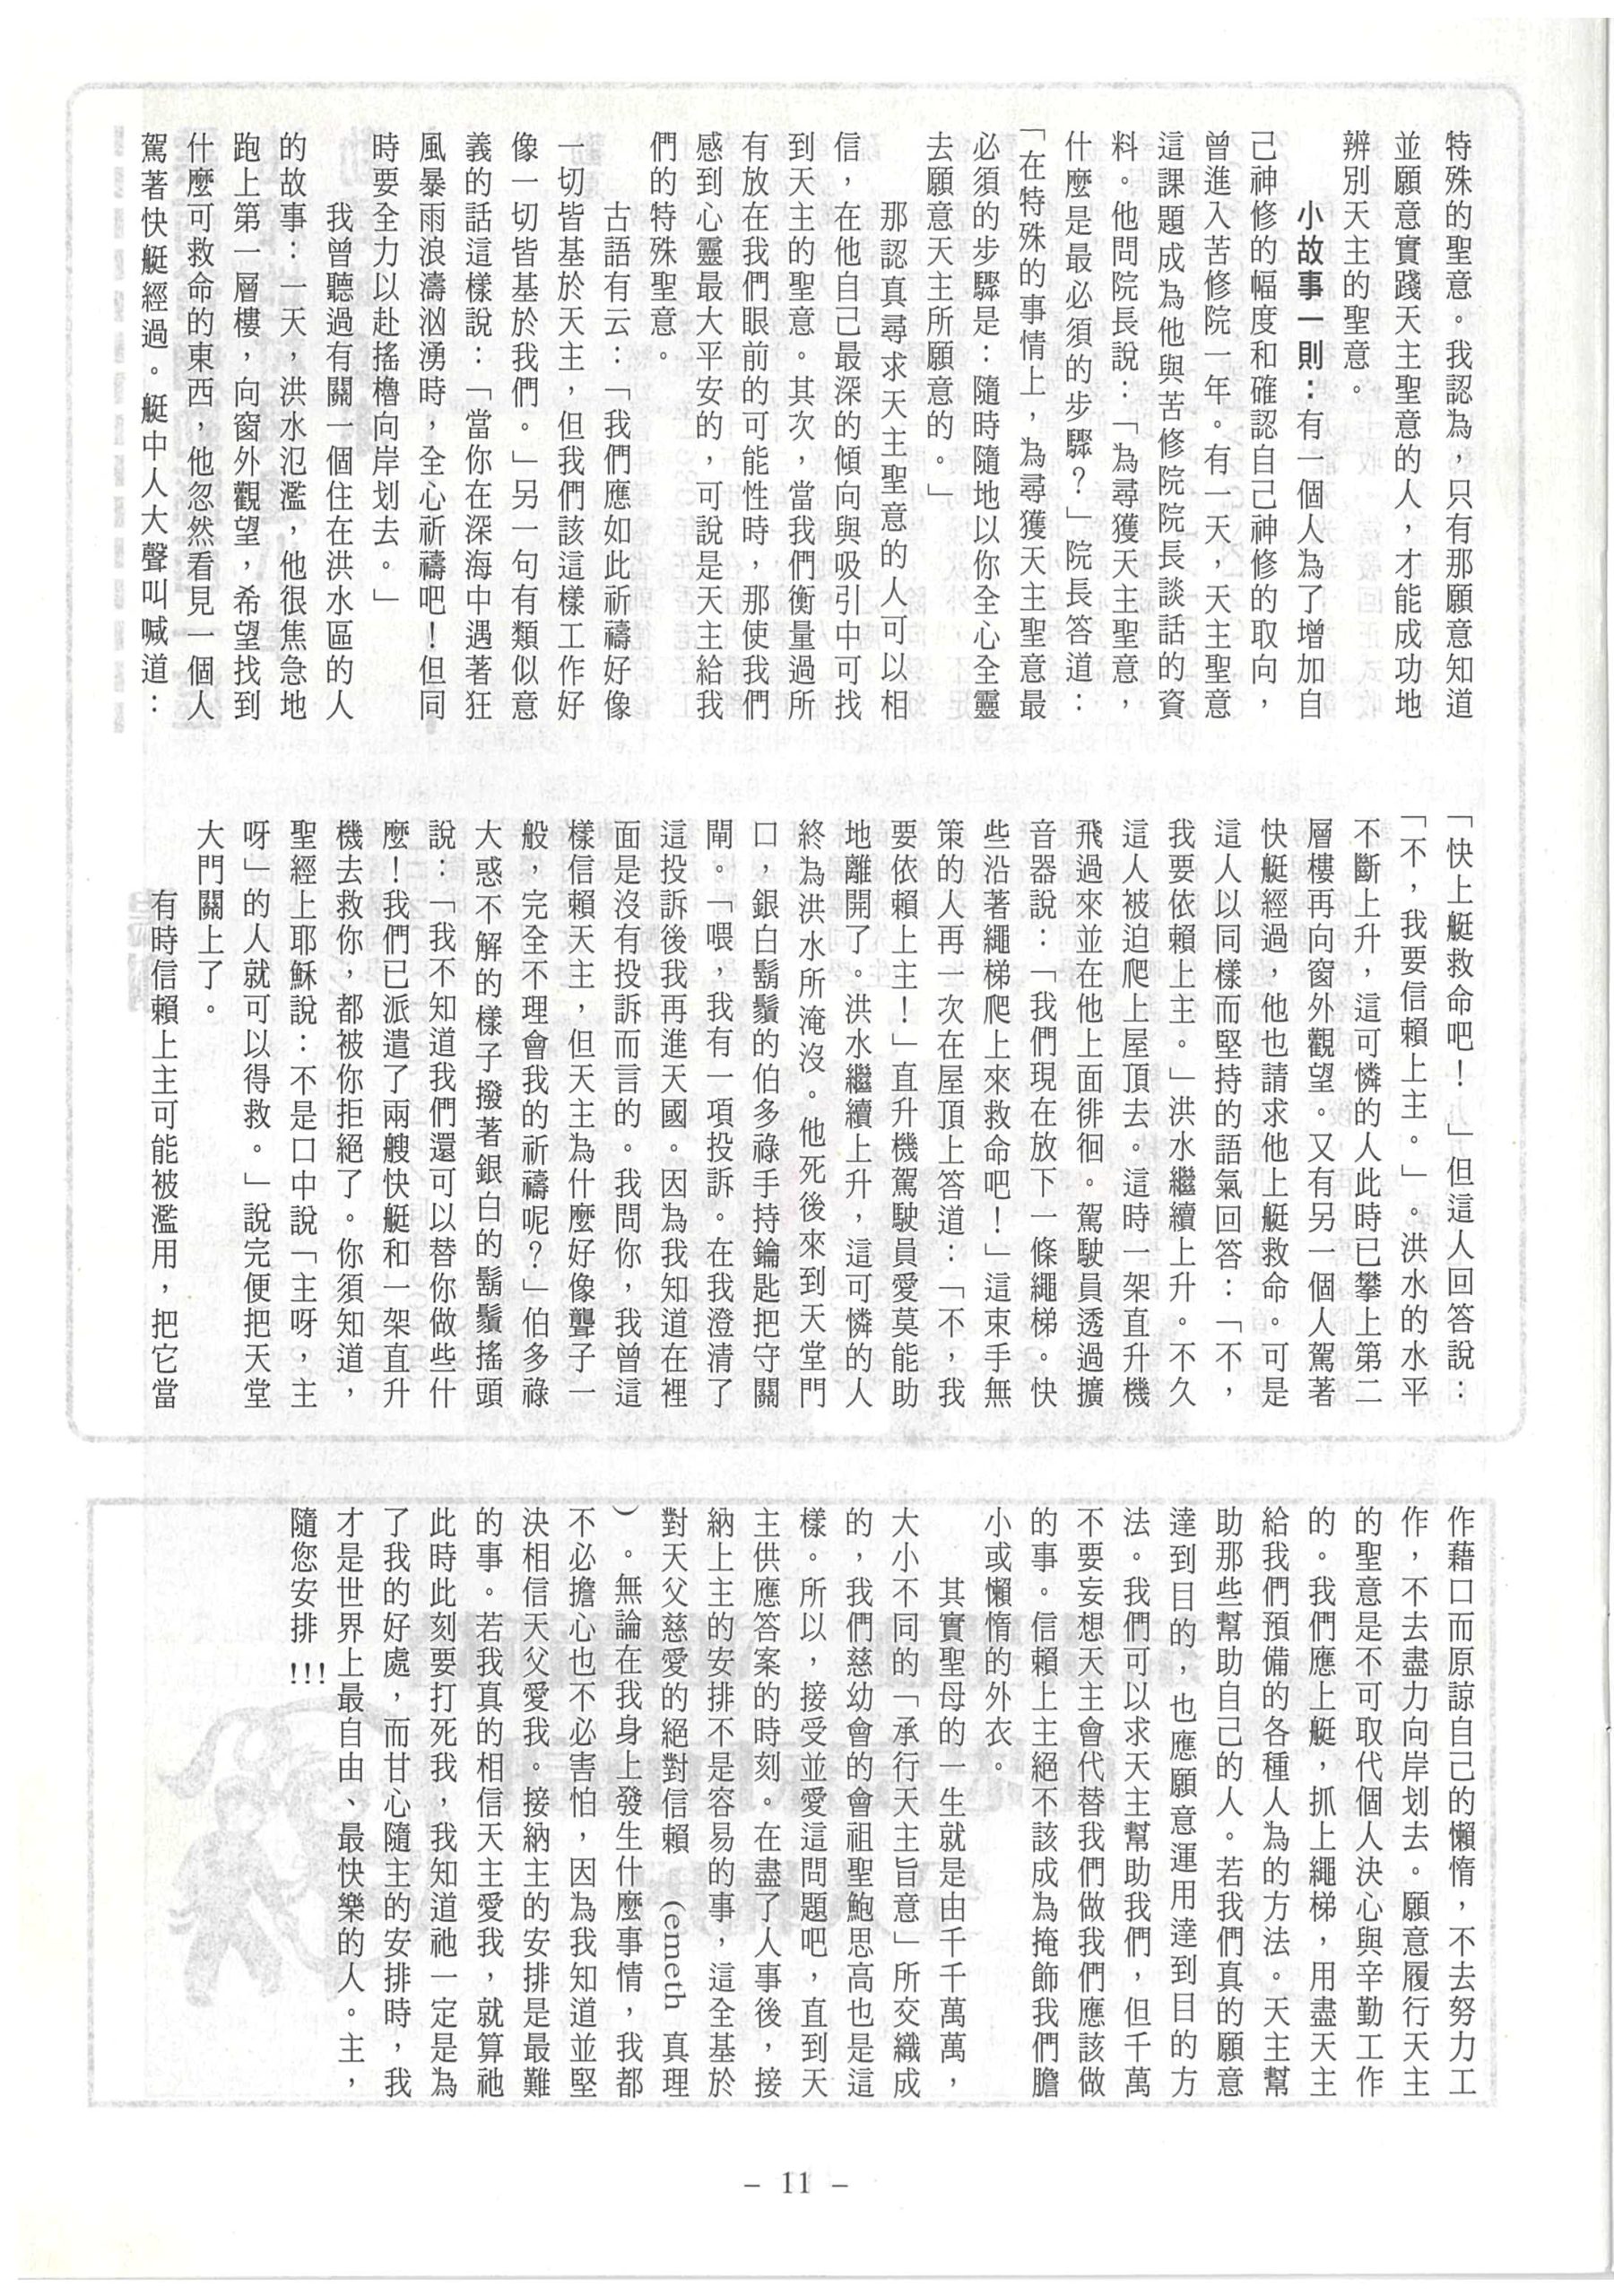 特殊的聖意。我認為，只有那願意知道
並願意實踐天主聖意的人，才能成功地
辨別天主的聖意。
小故事一則：有一個人為了增加自
己神修的幅度和確認自己神修的取向，
曾進入苦修院一年。有一天，天主聖意
這課題成為他與苦修院院長談話的資
料。他問院長說：「為尋獲天主聖意，
什麼是最必須的步驟？」院長答道：
「在特殊的事情上，為尋獲天主聖意最
必須的步驟是：隨時隨地以你全心全靈
去願意天主所願意的。」
那認真尋求天主聖意的人可以相
信，在他自己最深的傾向與吸引中可找
到天主的聖意。其次，當我們衡量過所
有放在我們眼前的可能性時，那使我們
感到心靈最大平安的，可說是天主給我
們的特殊聖意。
古語有云：「我們應如此祈禱好像
一切皆基於天主，但我們該這樣工作好
像一切皆基於我們。」另一句有類似意
義的話這樣說：「當你在深海中遇著狂
風暴雨浪濤洶湧時，全心祈禱吧！但同
時要全力以赴搖櫓向岸划去。」
我曾聽過有關一個住在洪水區的人
的故事：一天，洪水氾濫，他很焦急地
跑上第一層樓，向窗外觀望，希望找到
什麼可救命的東西，他忽然看見一個人
駕著快艇經過。艇中人大聲叫喊道：
「快上艇救命吧！」但這人回答說：
「不，我要信賴上主。」。洪水的水平
不斷上升，這可憐的人此時已攀上第二
層樓再向窗外觀望。又有另一個人駕著
快艇經過，他也請求他上艇救命。可是
這人以同樣而堅持的語氣回答：「不，
我要依賴上主。」洪水繼續上升。不久
這人被迫爬上屋頂去。這時一架直升機
飛過來並在他上面徘徊。駕駛員透過擴
音器說：「我們現在放下一條繩梯。快
些沿著繩梯爬上來救命吧！」這束手無
策的人再一次在屋頂上答道：「不，我
要依賴上主！」直升機駕駛員愛莫能助
地離開了。洪水繼續上升，這可憐的人
終為洪水所淹沒。他死後來到天堂門
口，銀白鬍鬚的伯多祿手持鑰匙把守關
閘。「喂，我有一項投訴。在我澄清了
這投訴後我再進天國。因為我知道在裡
面是沒有投訴而言的。我問你，我曾這
樣信賴天主，但天主為什麼好像聾子一
般，完全不理會我的祈禱呢？」伯多祿
大惑不解的樣子撥著銀白的鬍鬚搖頭
說：「我不知道我們還可以替你做些什
麼！我們已派遣了兩艘快艇和一架直升
機去救你，都被你拒絕了。你須知道，
聖經上耶穌說：不是口中說「主呀，主
呀」的人就可以得救。」說完便把天堂
大門關上了。
有時信賴上主可能被濫用，把它當
作藉口而原諒自己的懶惰，不去努力工
作，不去盡力向岸划去。願意履行天主
的聖意是不可取代個人決心與辛勤工作
的。我們應上艇，抓上繩梯，用盡天主
給我們預備的各種人為的方法。天主幫
助那些幫助自己的人。若我們真的願意
達到目的，也應願意運用達到目的方
法。我們可以求天主幫助我們，但千萬
不要妄想天主會代替我們做我們應該做
的事。信賴上主絕不該成為掩飾我們膽
小或懶惰的外衣。
其實聖母的一生就是由千千萬萬，
大小不同的「承行天主旨意」所交織成
的，我們慈幼會的會祖聖鮑思高也是這
樣。所以，接受並愛這問題吧，直到天
主供應答案的時刻。在盡了人事後，接
納上主的安排不是容易的事，這全基於
對天父慈愛的絕對信賴 (emeth 真理
)。無論在我身上發生什麼事情，我都
不必擔心也不必害怕，因為我知道並堅
決相信天父愛我。接納主的安排是最難
的事。若我真的相信天主愛我，就算祂
此時此刻要打死我，我知道祂一定是為
了我的好處，而甘心隨主的安排時，我
才是世界上最自由、最快樂的人。主，
隨您安排!!!
- 11 -